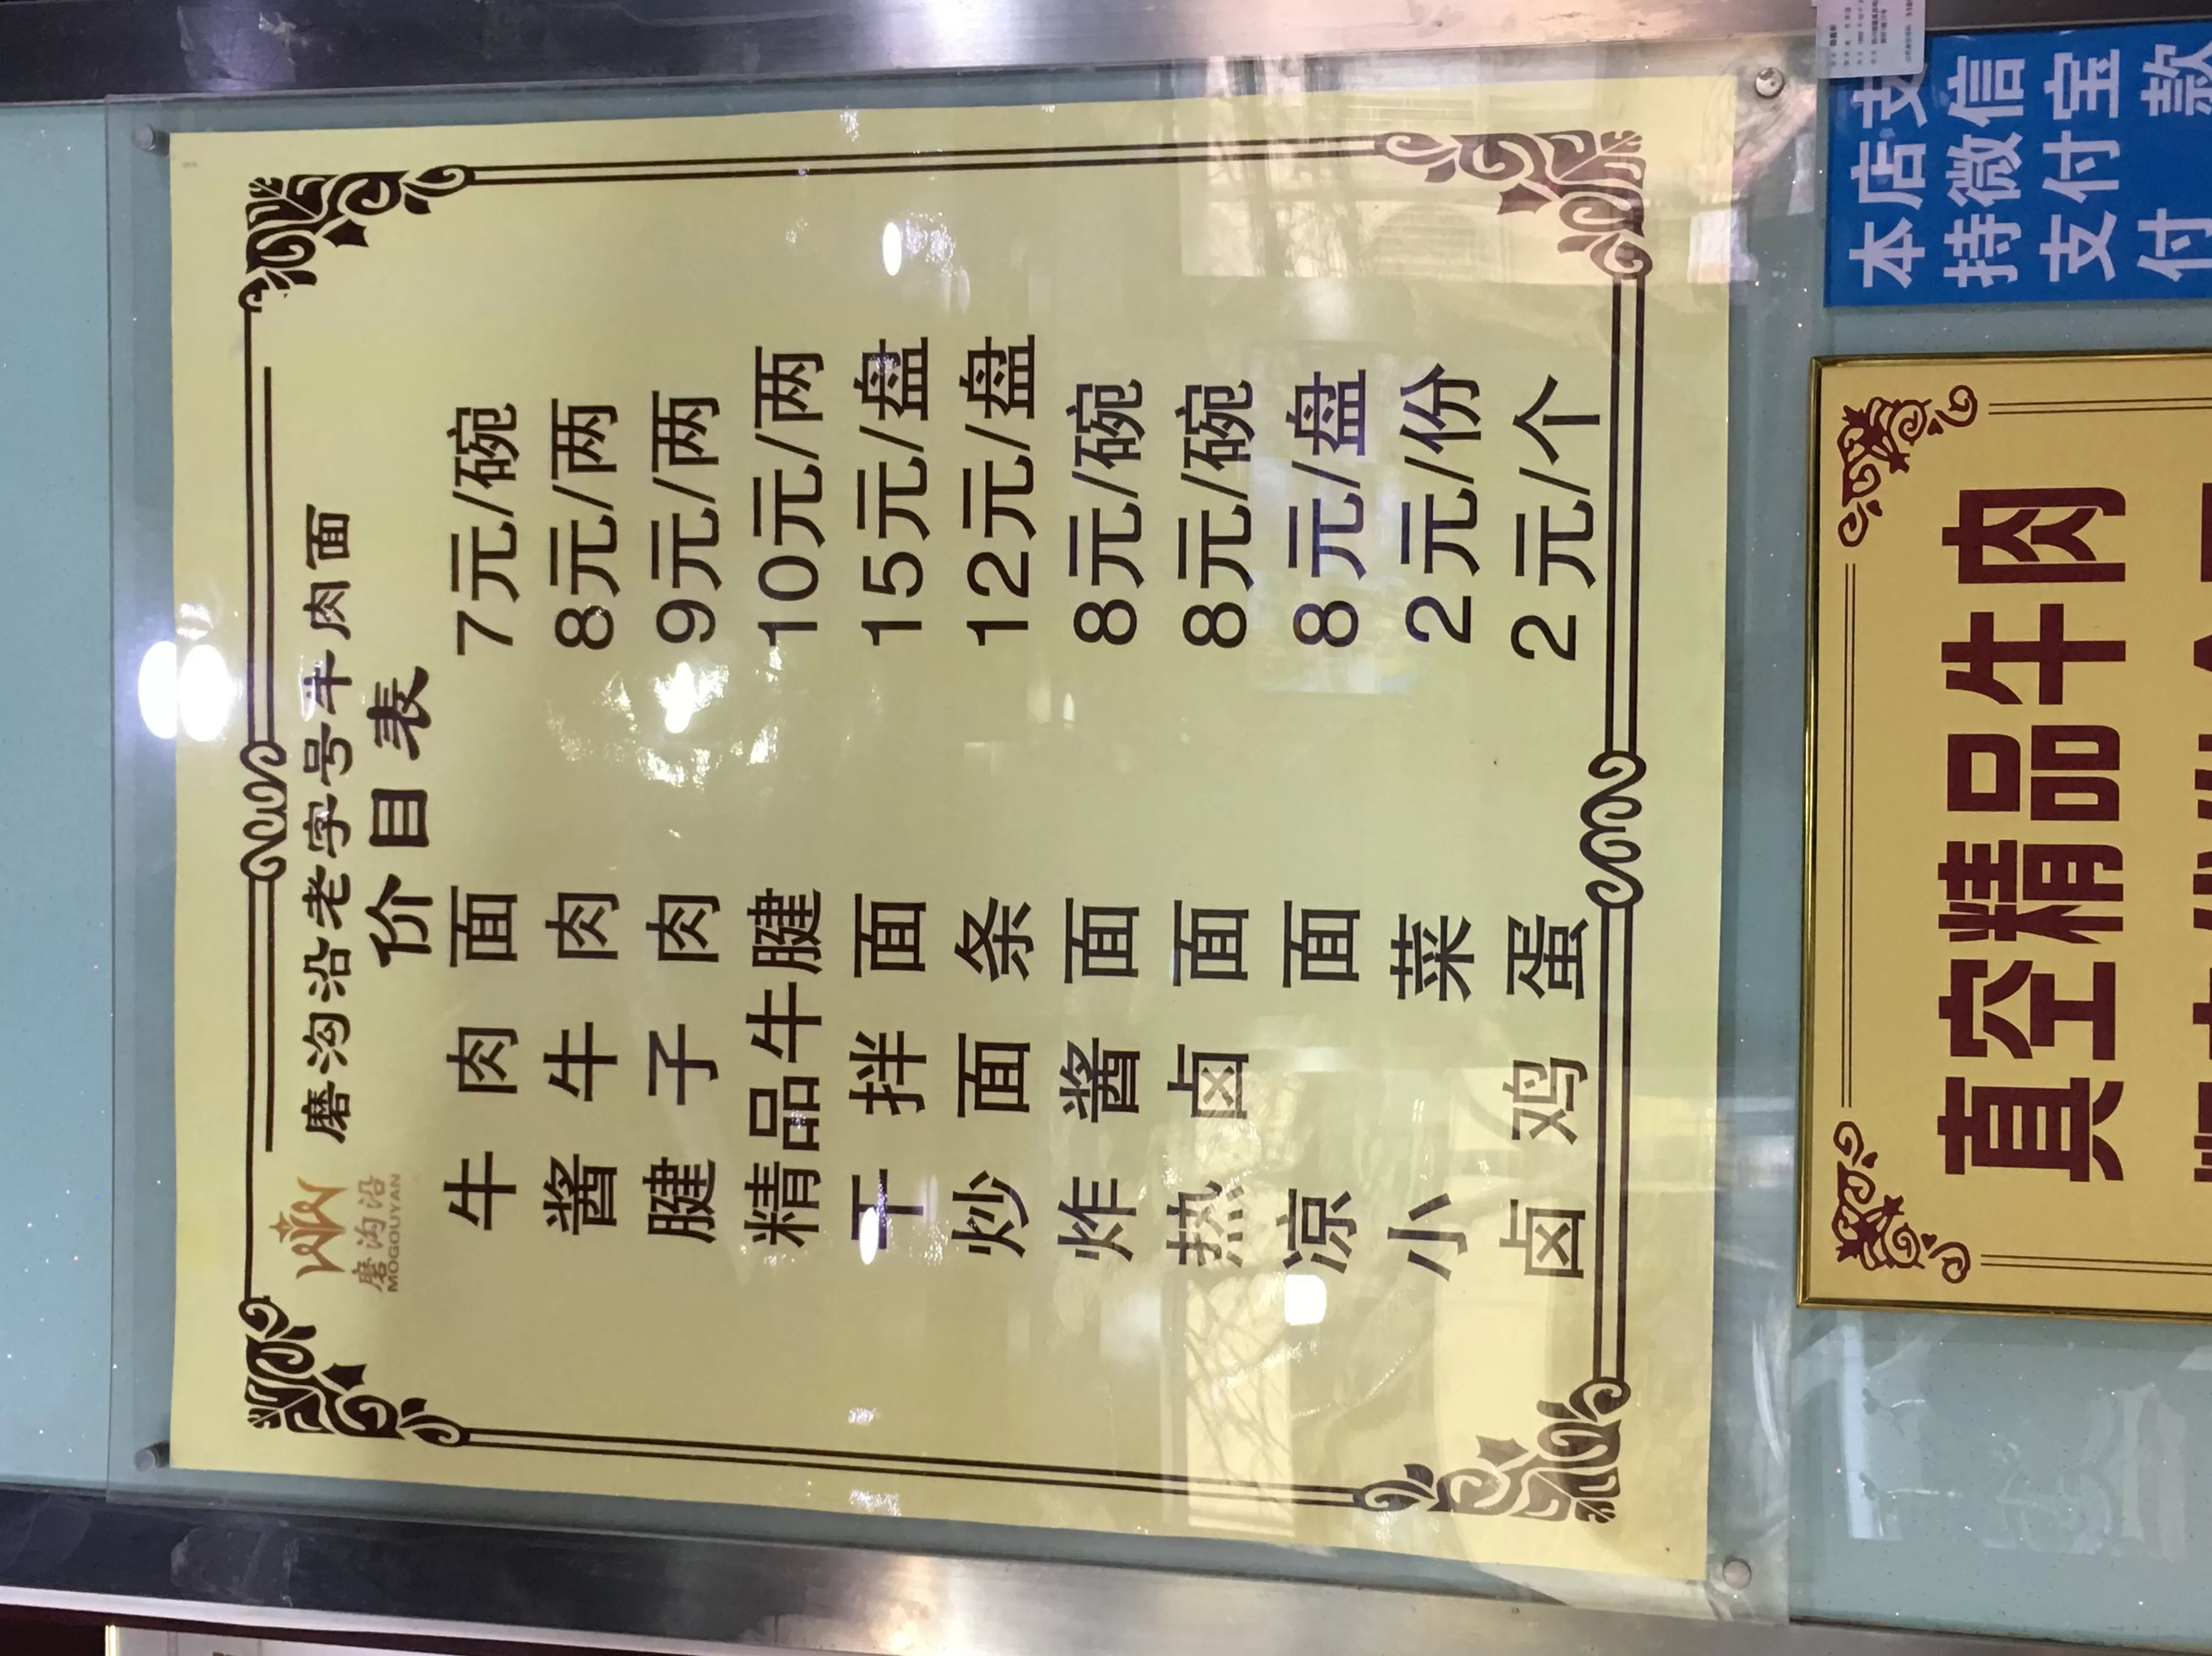 磨沟沿老字号牛肉面
磨沟沿
MOGOUYAN
价目表
牛肉面 7元/碗
酱牛肉 8元/两
腱子肉 9元/两
精品牛腱 10元/两
干拌面 15元/盘
炒面条 12元/盘
炸酱面 8元/碗
热卤面 8元/碗
凉面 8元/盘
小菜 2元/份
卤鸡蛋 2元/个
真空精品牛肉
本店支
持微信
支付宝
付款